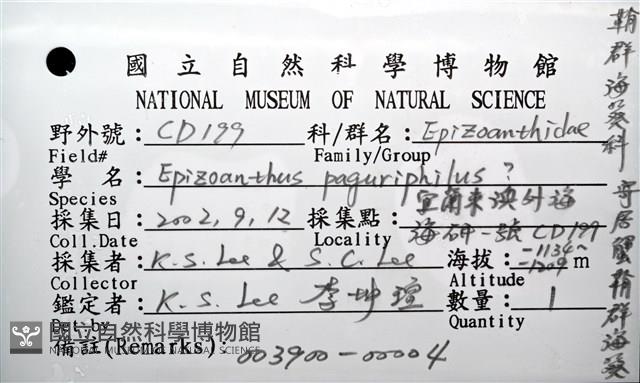 國立自然科學博物館
NATIONAL MUSEUM OF NATURAL SCIENCE
野外號：CD199 科/群名：Epizoanthidae
Field# Family/Group
學 名：Epizoanthus paguriphilus ?
Species
採集日：2002, 9, 12 採集點：宜蘭東澳外海 海研一號 CD199
Coll.Date Locality
採集者：K.S. Lee & S.C. Lee 海拔：-1134~ -1209 m
Collector Altitude
鑑定者：K.S. Lee 李坤瑄 數量：1
Det.by Quantity
備註(Remarks)：003900-00004
鞘群海葵科 寄居蟹鞘群海葵
國立自然科學博物館
NATIONAL MUSEUM OF NATURAL SCIENCE